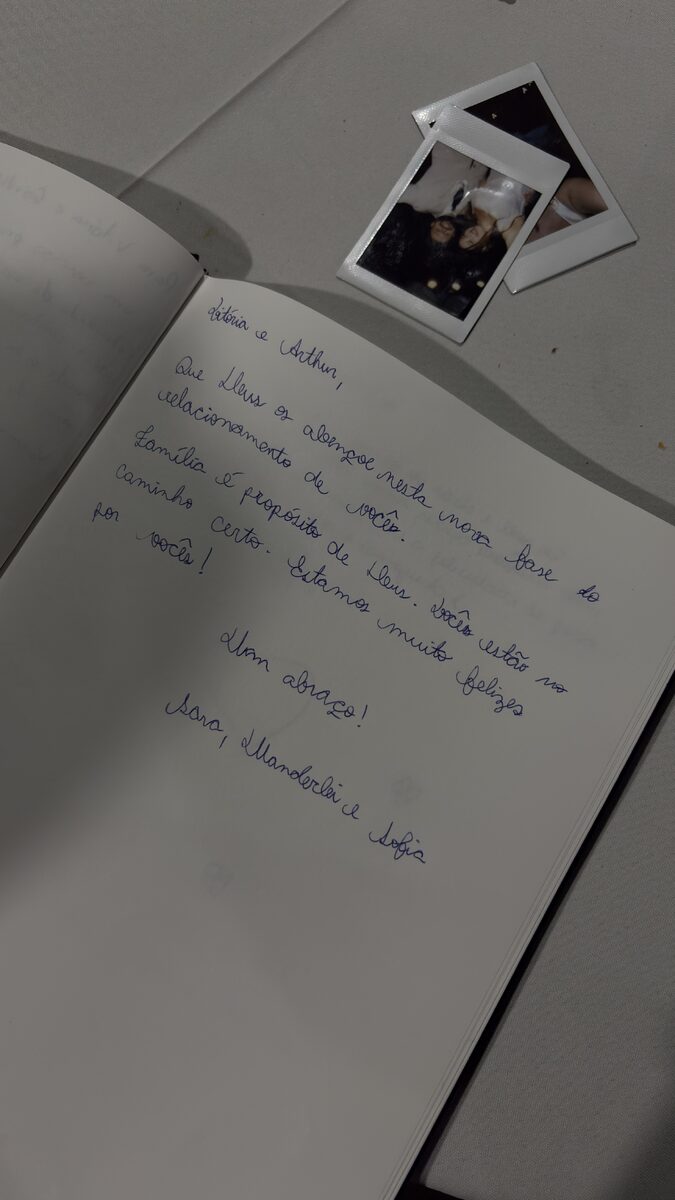 Vitória e Arthur,
Que Deus os abençoe nesta nova fase do
relacionamento de vocês.
Família é propósito de Deus. Vocês estão no
caminho certo. Estamos muito felizes
por vocês!
Um abraço!
Sara, Wanderlei e Sofia